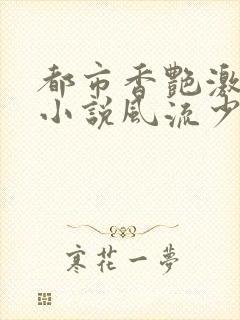 都市香艷激
小説風流少
寒花一夢